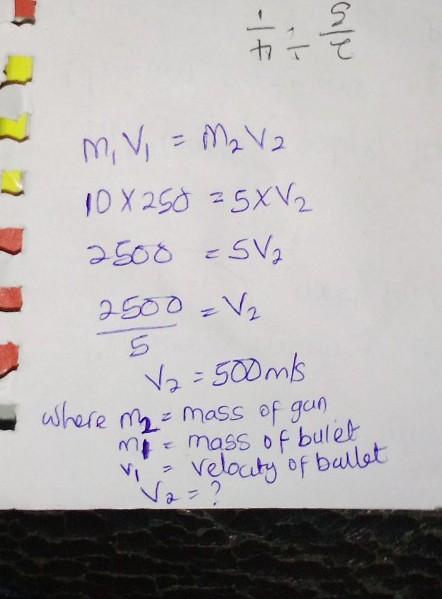 2/5 ÷ 4/1
m₁V₁ = m₂V₂
10 X 250 = 5 X V₂
2500 = 5V₂
2500/5 = V₂
V₂ = 500m/s
where m₂ = mass of gun
m1 = mass of bulet
v₁ = velocity of bullet
V₂ = ?